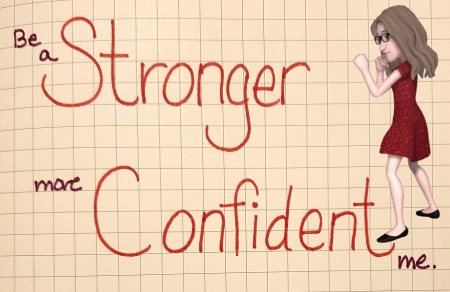 Be
a Stronger
more Confident
me.